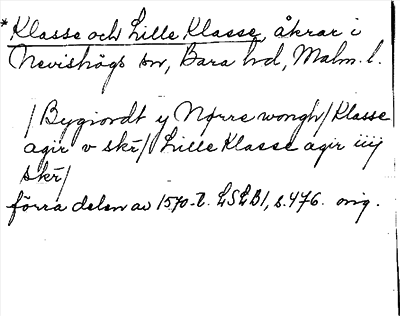 *Klasse och Lille Klasse, åkrar i
Nevishögs sn, Bara hd, Malm. l.
/Bygiordt y Nørre wongh/Klasse
agir v skr̄/Lille Klasse agir iiij
skr̄/
förra delen av 1570-t. LSLB1, s. 476. orig.